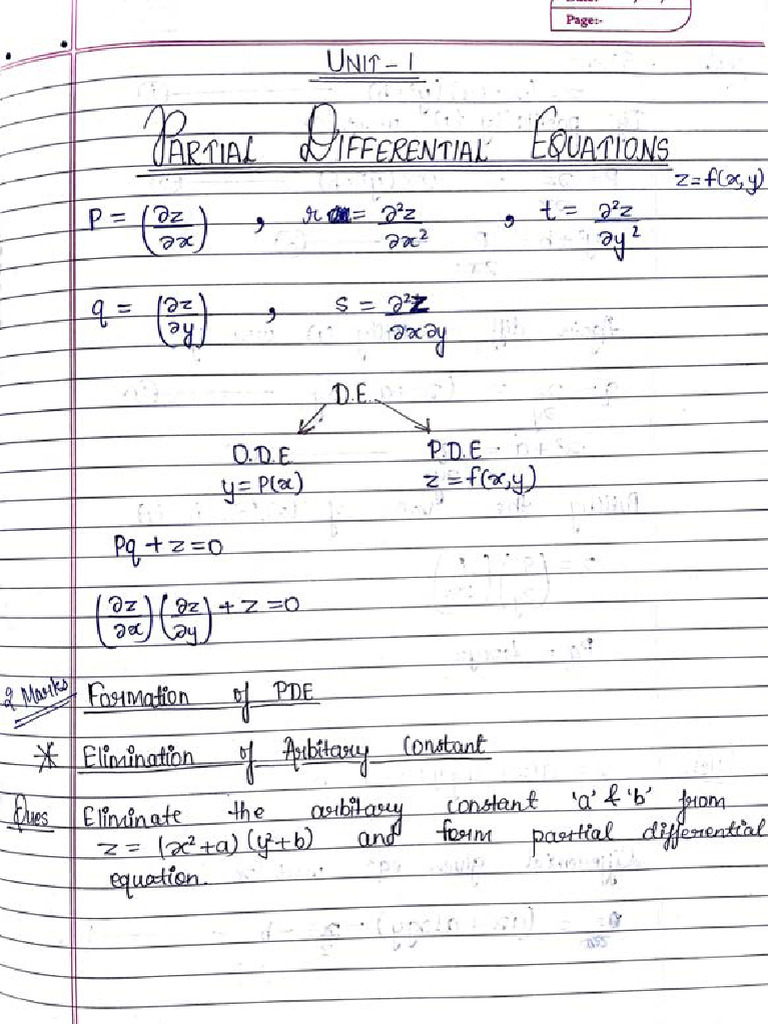 Page:-
UNIT - 1
PARTIAL DIFFERENTIAL EQUATIONS
z=f(x,y)
P = (∂z/∂x) , r = ∂²z/∂x² , t = ∂²z/∂y²
q = (∂z/∂y) , s = ∂²z/∂x∂y
D.E.
O.D.E P.D.E
y=P(x) z=f(x,y)
Pq + z=0
(∂z/∂x)(∂z/∂y) + z =0
2 Marks Formation of PDE
* Elimination of Arbitary Constant
Ques Eliminate the arbitary constant 'a' & 'b' from
z = (x²+a) (y²+b) and form partial differential
equation.